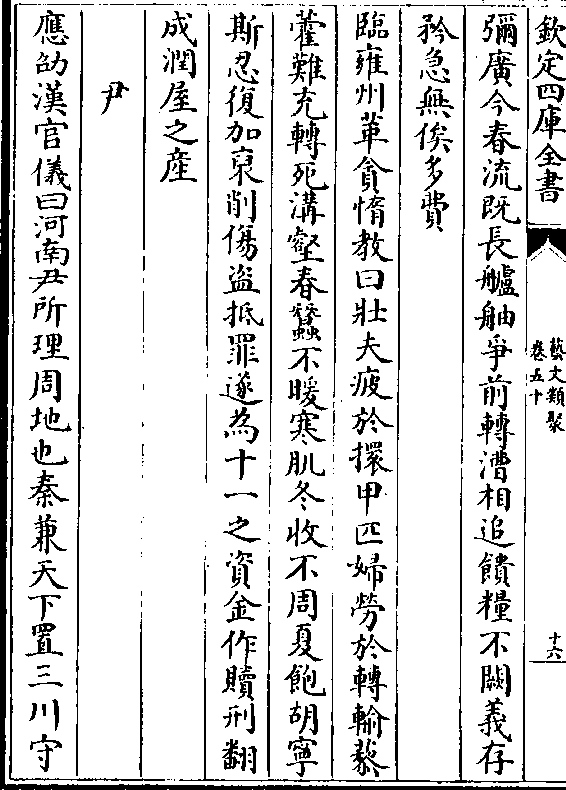 欽定四庫全書
藝文類聚
卷五十
十六
彌廣今春流既長艫舳爭前轉漕相追饋糧不闕義存
矜急無俟多費
臨雍州革貪惰教曰壯夫疲於擐甲匹婦勞於轉輸藜
藿難充轉死溝壑春蠶不暖寒肌冬收不周夏飽胡寧
斯忍復加裒削傷盜抵罪遂為十一之資金作贖刑翻
成潤屋之産
尹
應劭漢官儀曰河南尹所理周地也秦兼天下置三川守